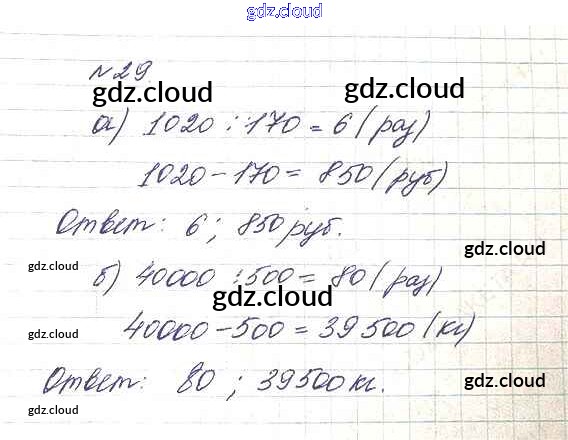 gdz.cloud
№29
gdz.cloud
а) 1020 : 170 = 6 (раз)
gdz.cloud
1020 - 170 = 850 (руб)
Ответ: 6; 850 руб.
gdz.cloud
gdz.cloud
б) 40000 : 500 = 80 (раз)
gdz.cloud
40000 - 500 = 39500 (кг)
gdz.cloud
Ответ: 80; 39500 кг.
gdz.cloud
gdz.cloud